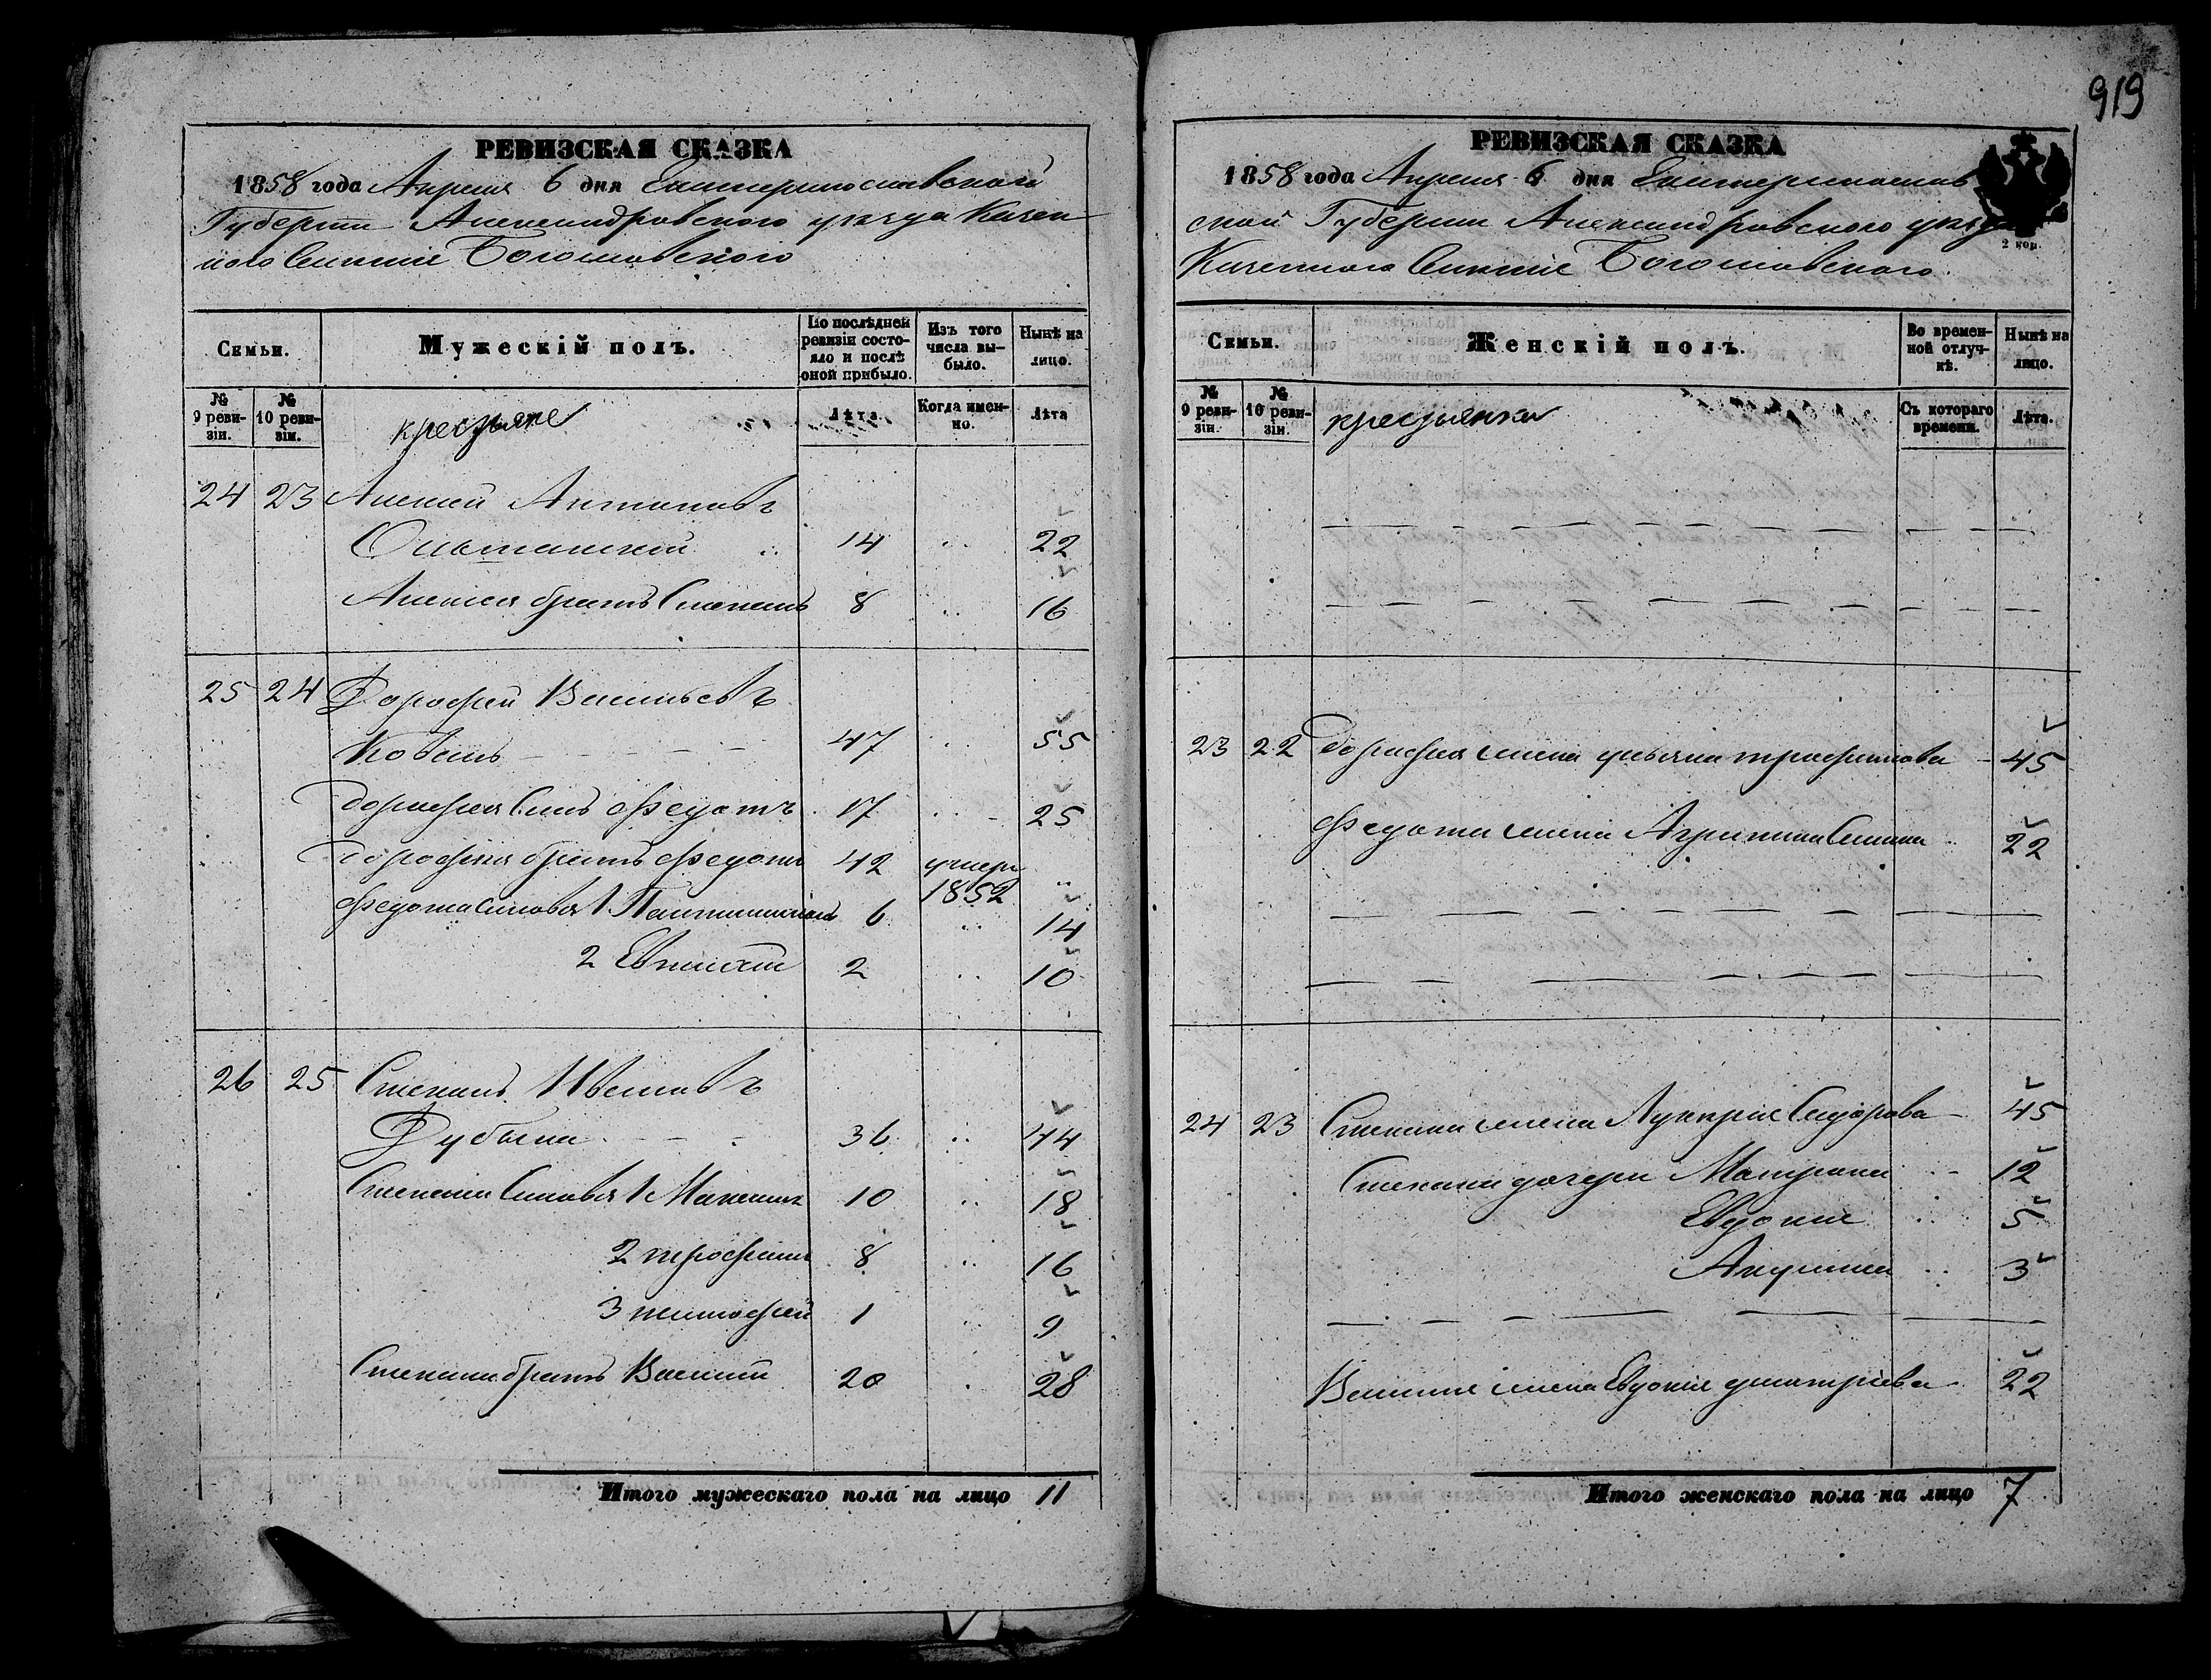 919
РЕВИЗСКАЯ СКАЗКА
1858 года Апреля 6 дня Екатеринославской
Губернии Александровского уезда Казен
ного Селения Богословского
Семьи.
Мужескій полъ.
По послѣдней ревизіи состояло и послѣ оной прибыло.
Изъ того числа выбыло.
Нынѣ на лицо.
№ 9 ревизіи.
№ 10 ревизіи.
крестьяне
Лѣта.
Когда именно.
Лѣта
24 23 Алексей Антоновъ
14 22
Алексея братъ Степанъ 8 16
25 24 Дорофей Васильевъ
Коваль 47 55
Дорофея Сынъ Федотъ 17 25
Дорофея братъ Федотъ 42 умеръ 1852
Федота Сыновья 1 6 14
2 2 10
26 25 Степанъ Ивановъ
Дубына 36 44
Степана Сыновья 1 Максимъ 10 18
2 трофимъ 8 16
3 тимофей 1 9
Степана братъ Василий 20 28
Итого мужескаго пола на лицо 11
РЕВИЗСКАЯ СКАЗКА
1858 года Апреля 6 дня Екатеринослав
ской Губернии Александровского уезда
Казенного Селения Богословского
2 коп.
Семьи.
Женскій полъ.
Во временной отлучкѣ.
Нынѣ на лицо.
№ 9 ревизіи.
№ 10 ревизіи.
крестьянки
Съ котораго времени.
Лѣта.
23 22 Дорофея жена ульяна трофимова 45
Федота жена Агрипина 22
24 23 Степана жена Лукерія Сидорова 45
Степана дочери Матрона 12
Евдокия 5
Акулина 3
Василия жена Евдокия дмитріева 22
Итого женскаго пола на лицо 7